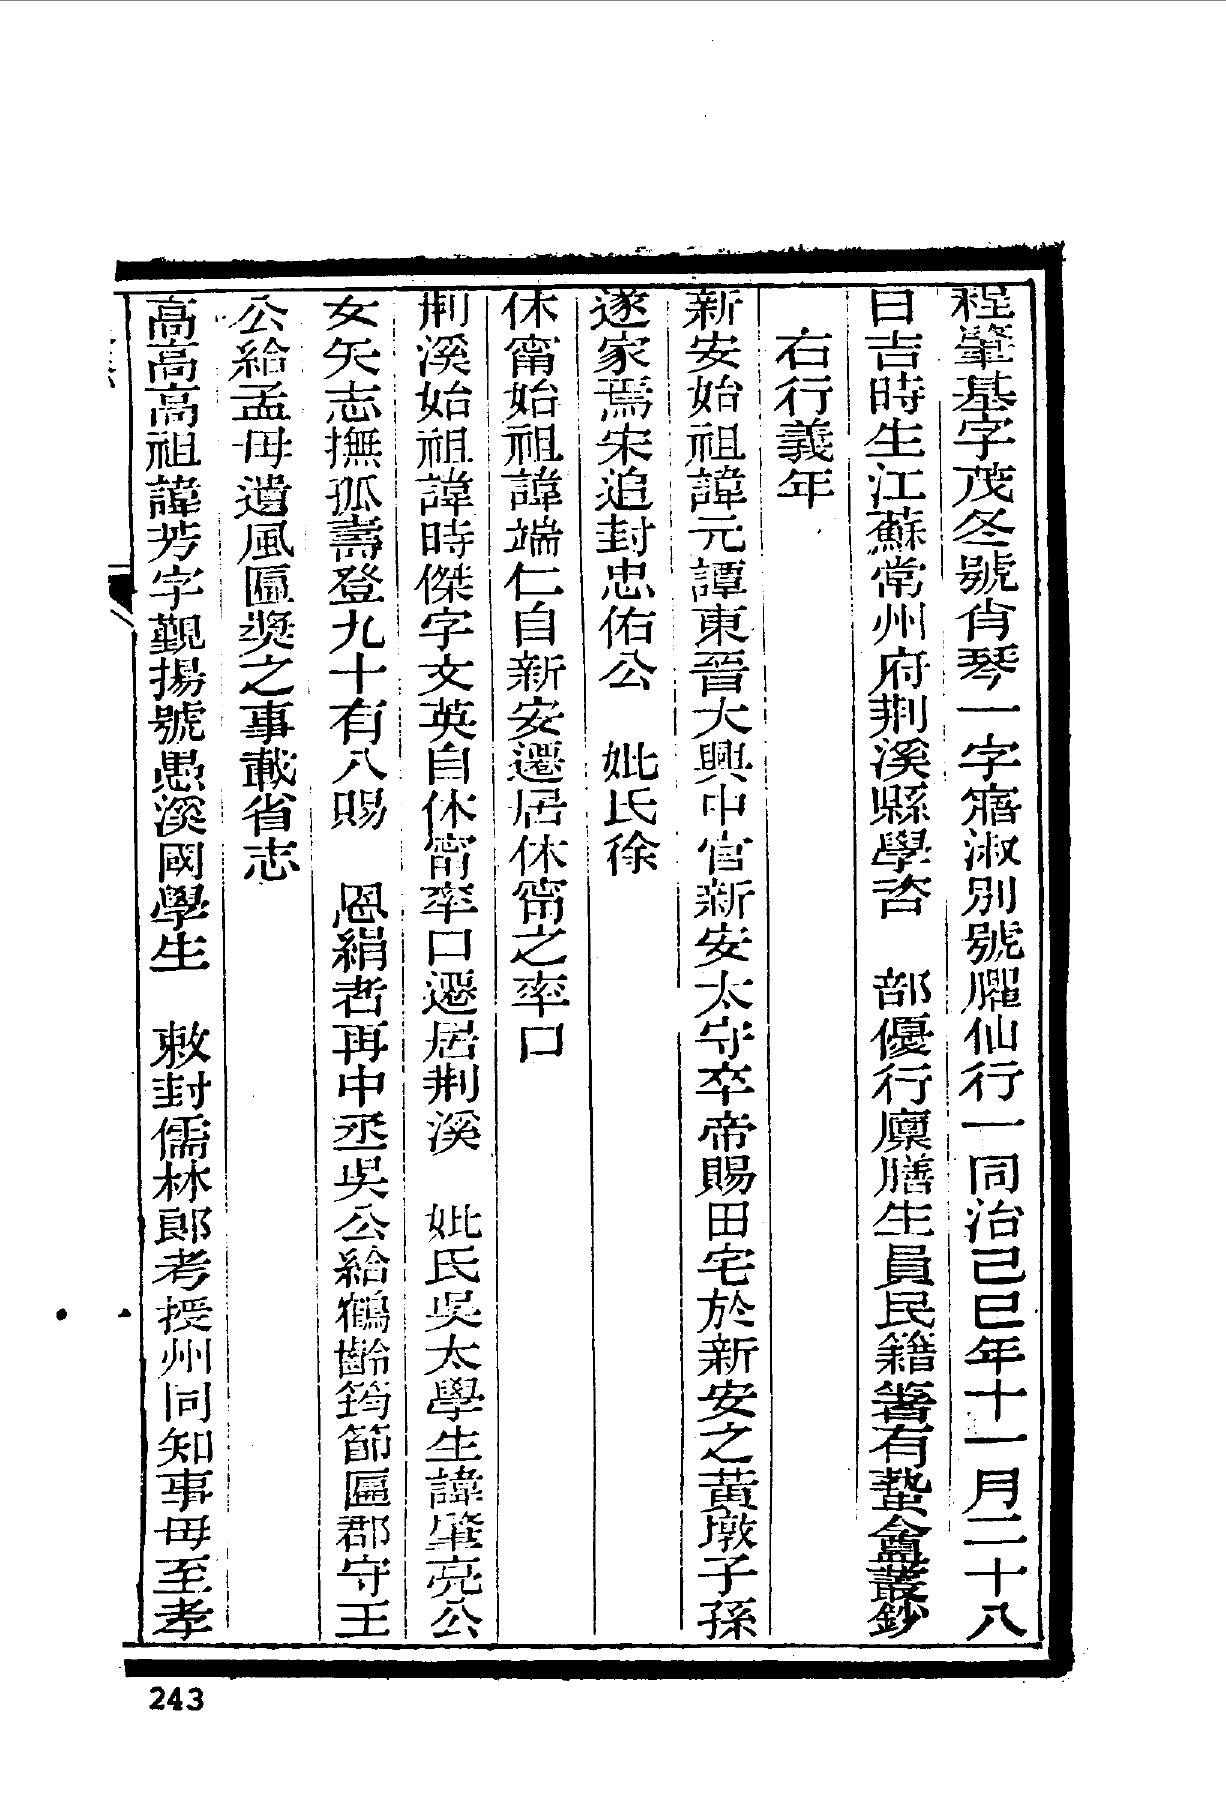 程肇基字茂冬號肯琴一字寤淑別號臞仙行一同治己巳年十一月二十八
日吉時生江蘇常州府荆溪縣學咨　部優行廩膳生員民籍著有蟄盦叢鈔
右行義年
新安始祖諱元譚東晉大興中官新安太守卒帝賜田宅於新安之黃墩子孫
遂家焉宋追封忠佑公　妣氏徐
休甯始祖諱端仁自新安遷居休甯之率口
荆溪始祖諱時傑字文英自休甯率口遷居荆溪　妣氏吳太學生諱肇亮公
女矢志撫孤壽登九十有八賜　恩絹者再中丞吳公給鶴齡筠節匾郡守王
公給孟母遺風匾獎之事載省志
高高高祖諱芳字覲揚號愚溪國學生　敕封儒林郎考授州同知事母至孝
243